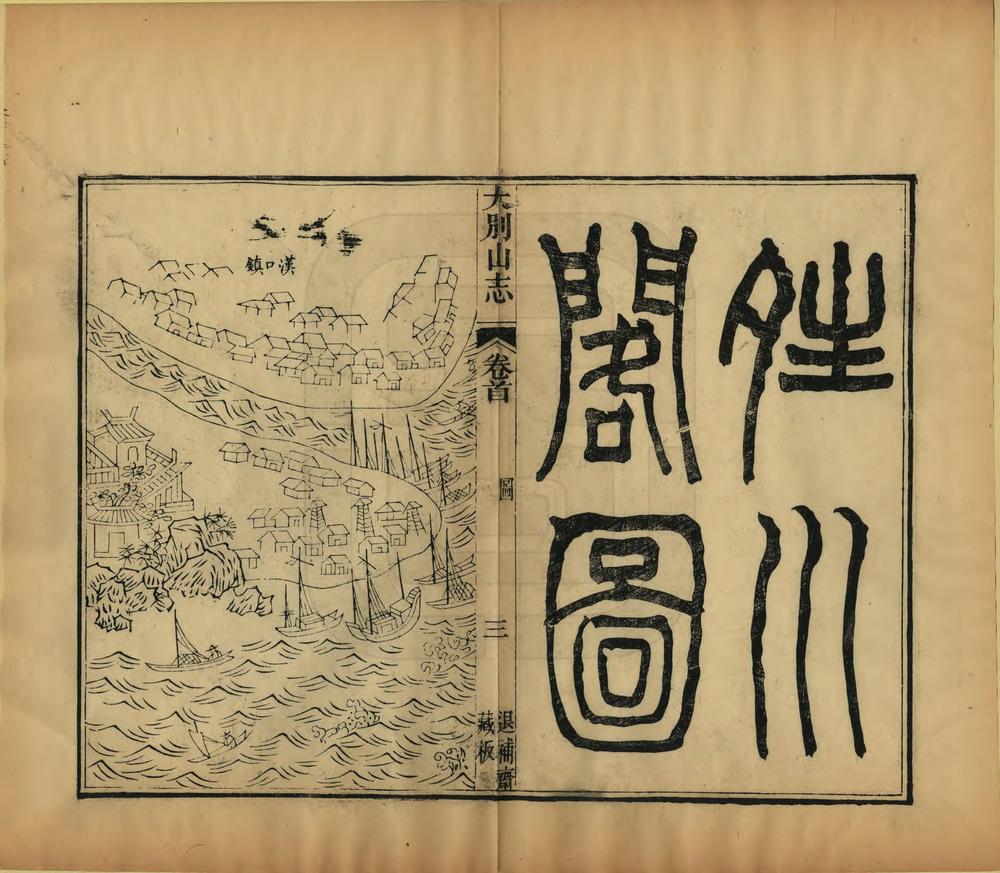 夝川
閣圖
大別山志
卷首
圖
三
退補齋
藏板
漢口鎮